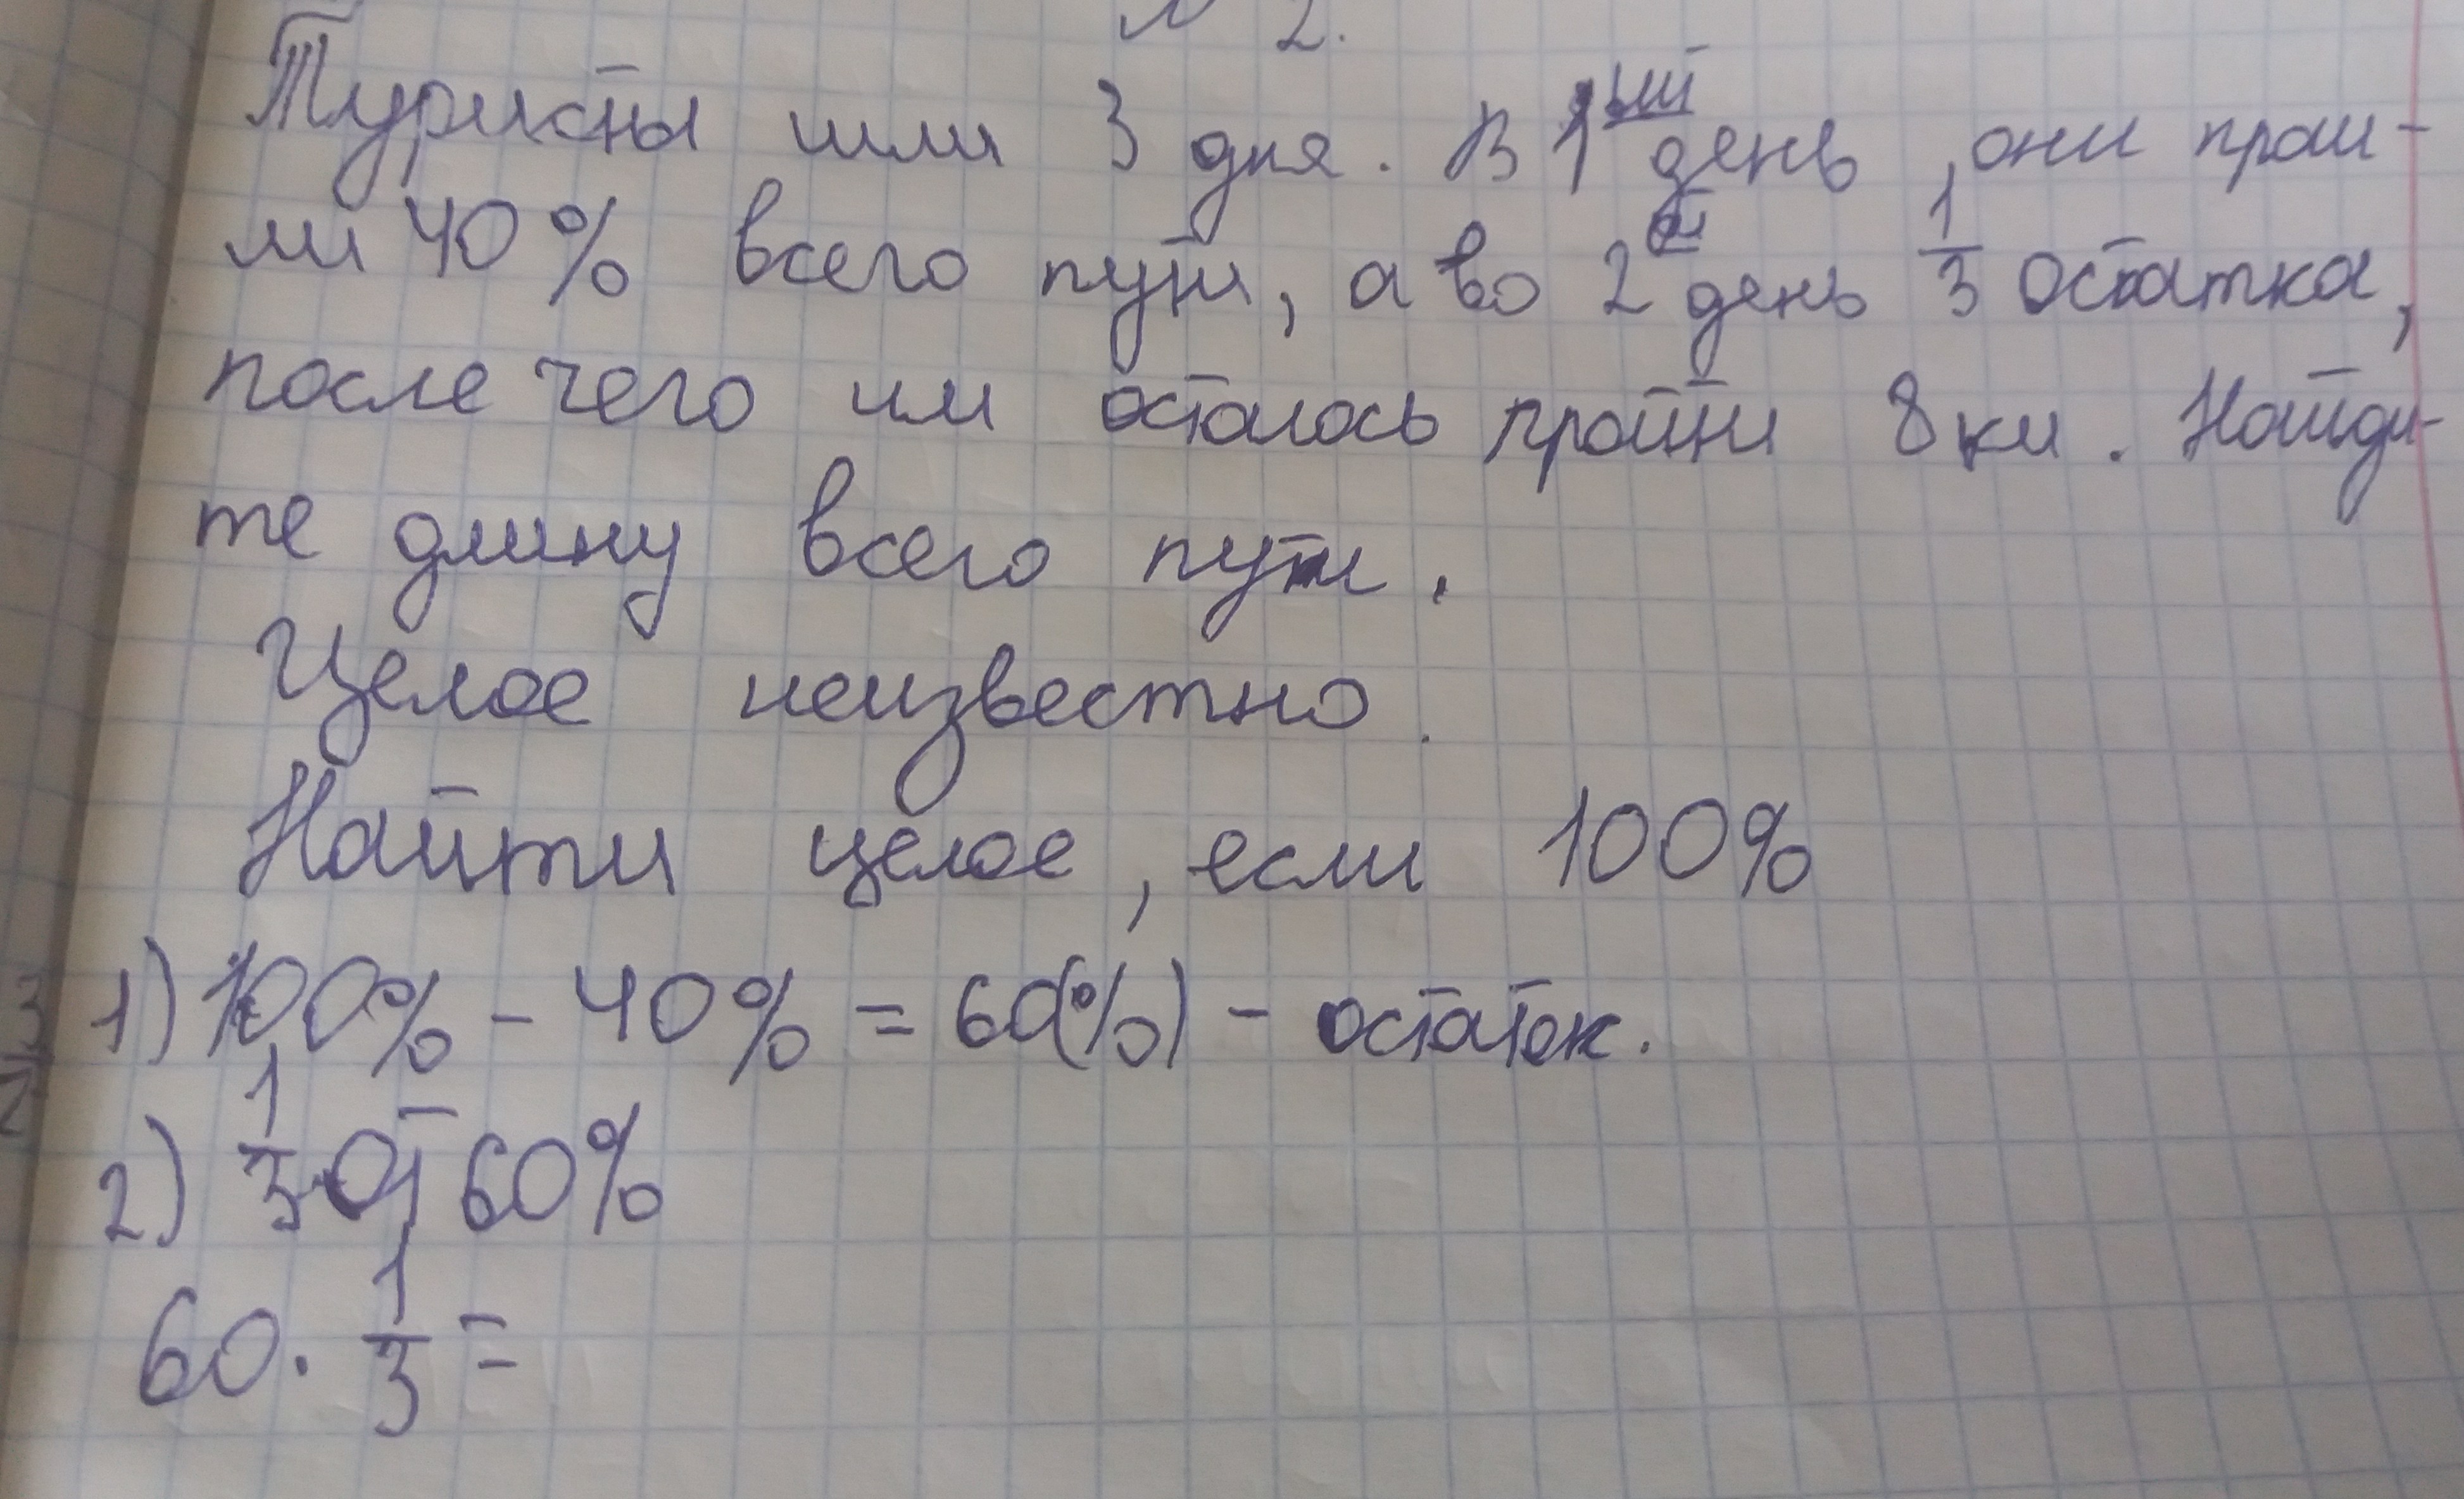 № 2.
Туристы шли 3 дня. В 1ый день, они прош-
ли 40% всего пути, а во 2й день 1/3 остатка,
после чего им осталось пройти 8 км. Найди-
те длину всего пути.
Целое неизвестно.
Найти целое, если 100%
1) 100% - 40% = 60(%) - остаток.
2) 1/3 от 60%
60 · 1/3 =